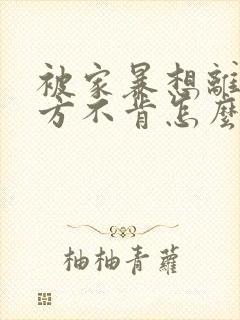 被家暴想離
方不肯怎麼
柚柚青蘿